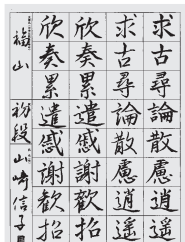 求古尋論散慮逍遥
求古尋論散慮逍遥
欣奏累遣慼謝歡招
欣奏累遣慼謝歡招
福山 初段 山崎信子